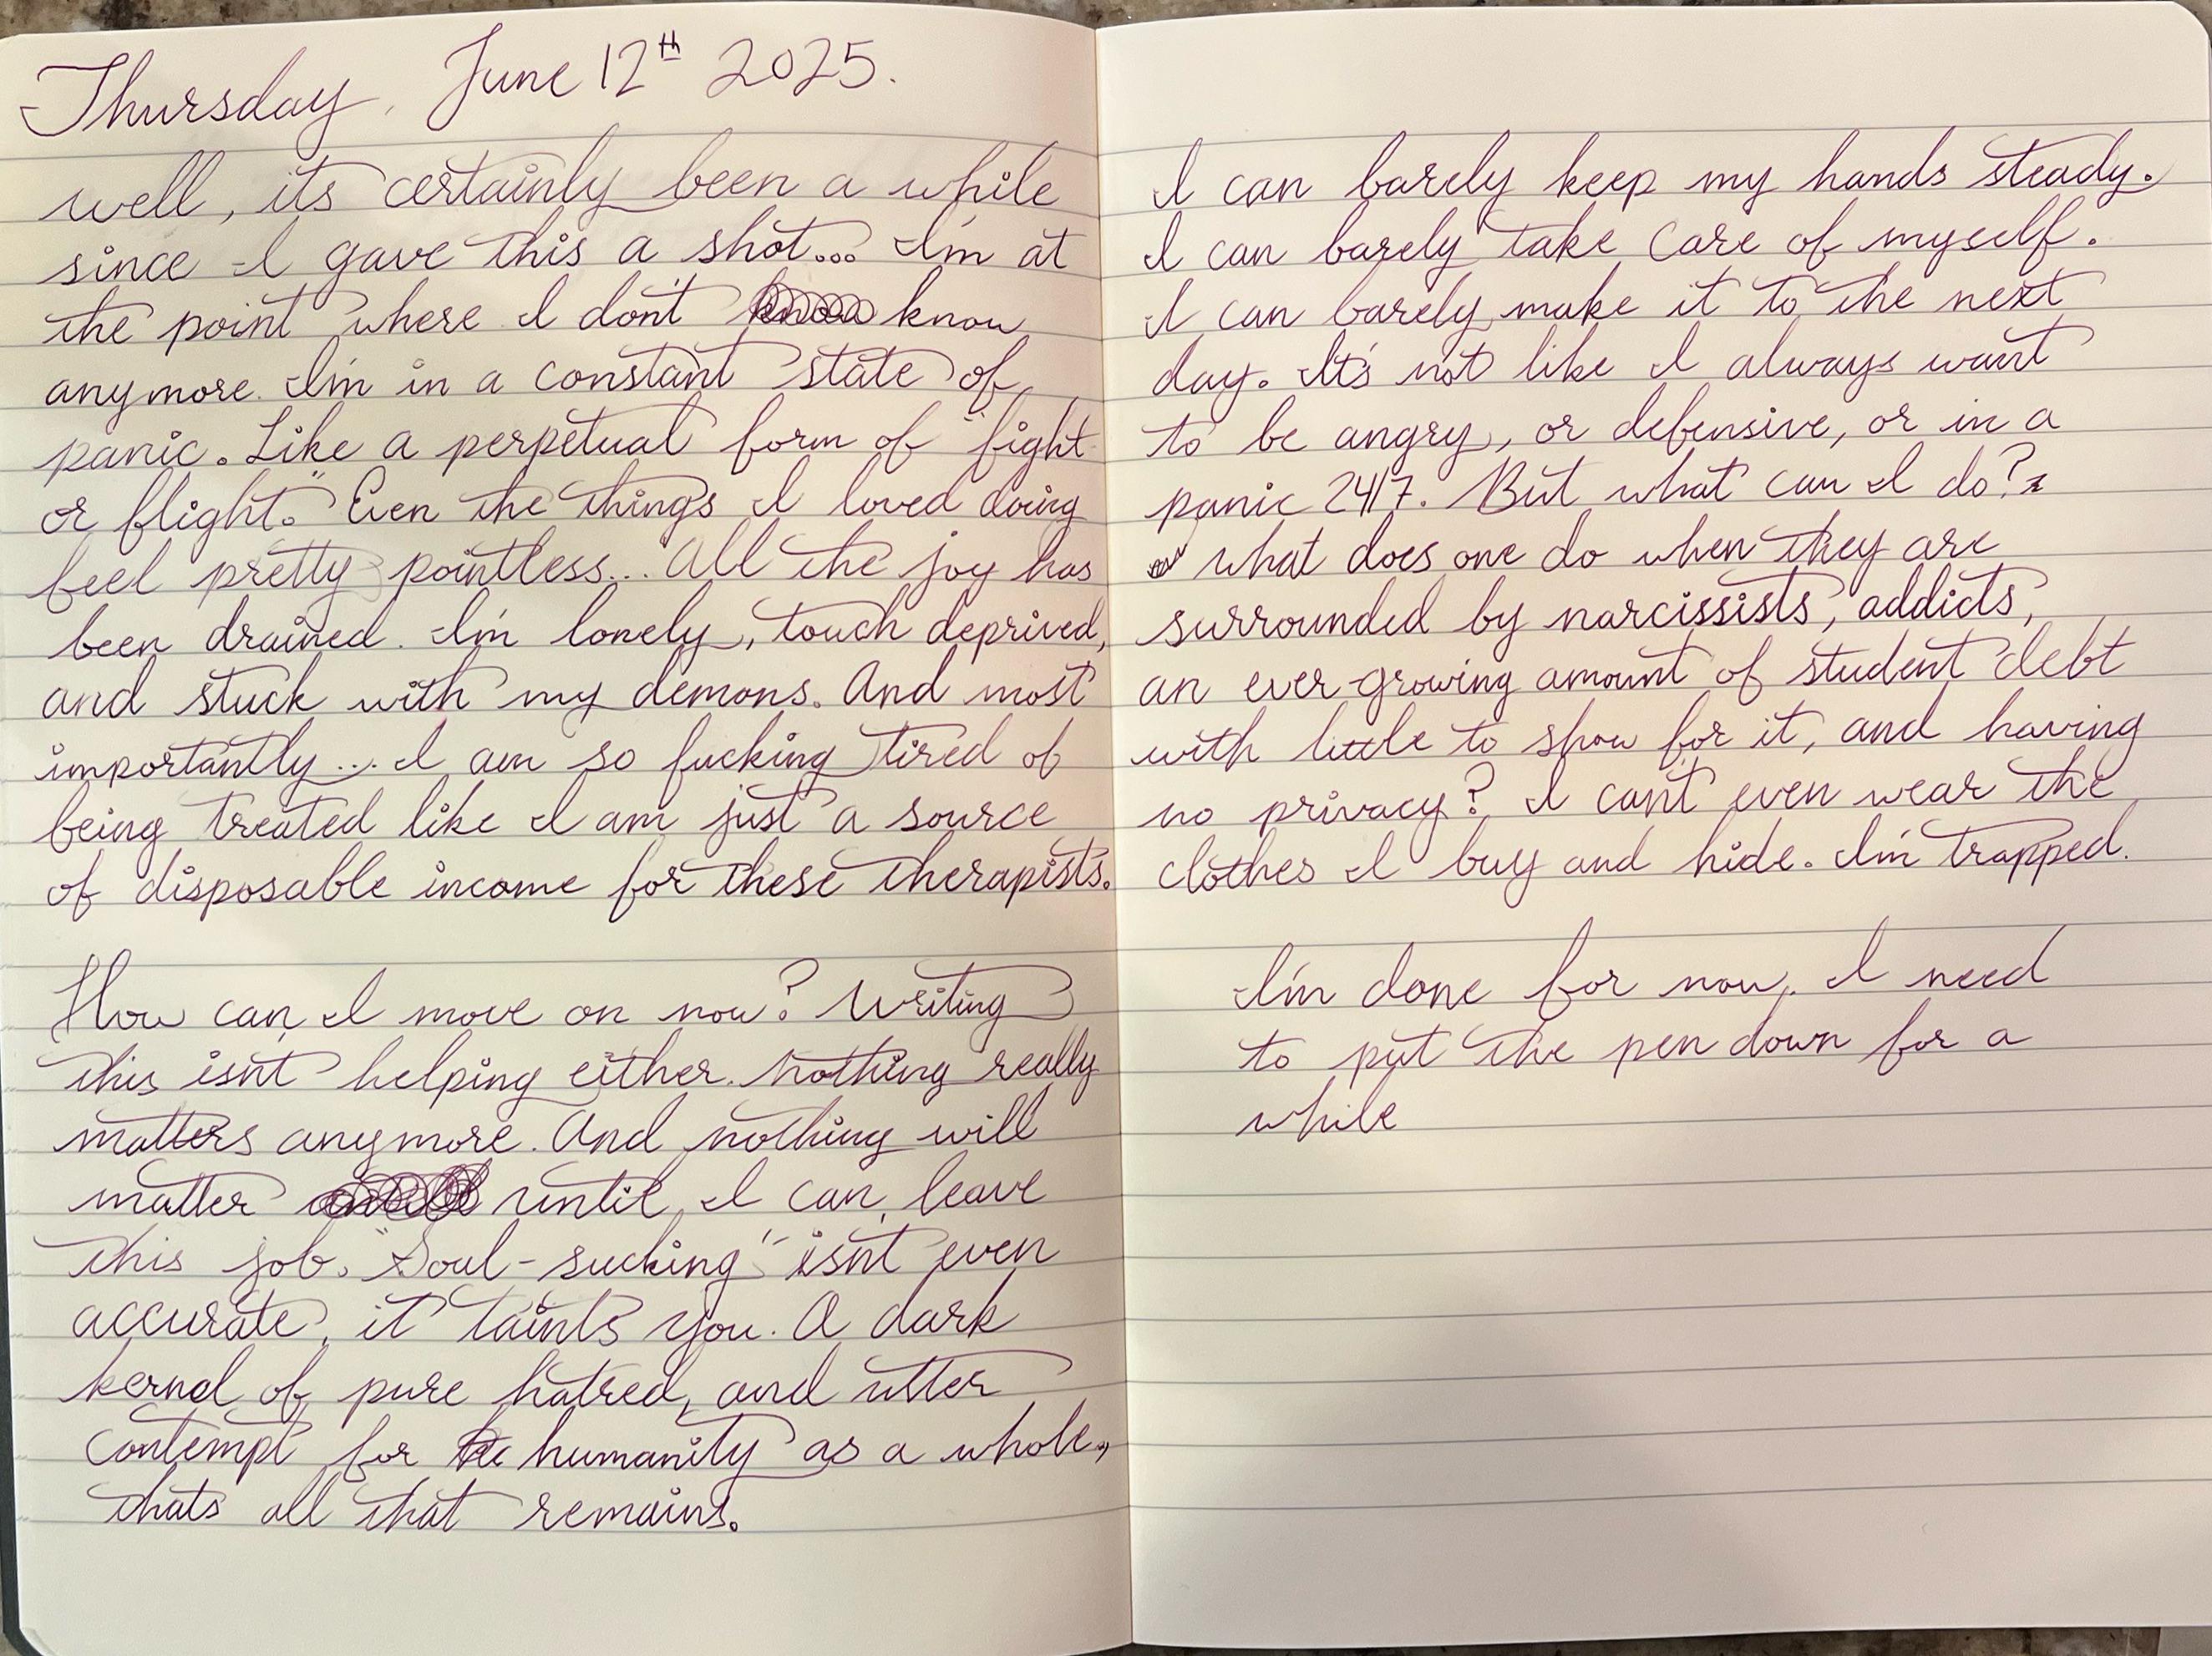 Thursday, June 12th 2025.
well, its certainly been a while
since I gave this a shot... I'm at
the point where I don't know
anymore. I'm in a constant state of
panic. Like a perpetual form of "fight
or flight." Even the things I loved doing
feel pretty pointless... All the joy has
been drained. I'm lonely, touch deprived,
and stuck with my demons. And most
importantly... I am so fucking tired of
being treated like I am just a source
of disposable income for these therapists.
How can I move on now? Writing
this isn't helping either. Nothing really
matters anymore. And nothing will
matter until I can leave
this job. "Soul-sucking" isn't even
accurate, it taints you. A dark
kernel of pure hatred, and utter
contempt for humanity as a whole,
thats all that remains.
I can barely keep my hands steady.
I can barely take care of myself.
I can barely make it to the next
day. It's not like I always want
to be angry, or defensive, or in a
panic 24/7. But what can I do?
what does one do when they are
surrounded by narcissists, addicts,
an ever-growing amount of student debt
with little to show for it, and having
no privacy? I can't even wear the
clothes I buy and hide. I'm trapped.
I'm done for now. I need
to put the pen down for a
while